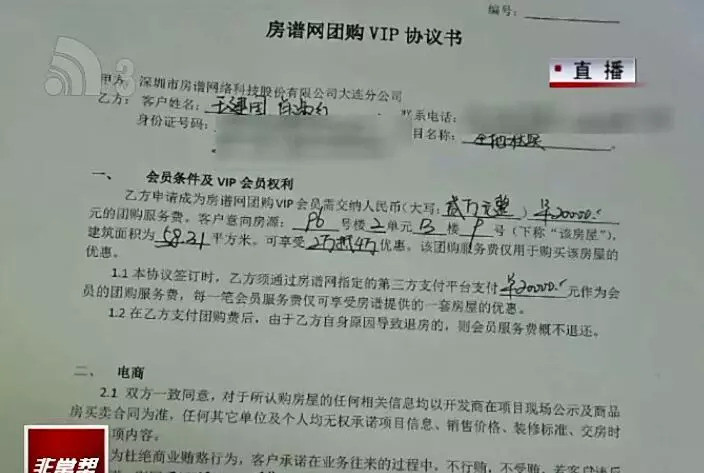 编号:
房谱网团购 VIP 协议书
直播
3
甲方: 深圳市房谱网络科技股份有限公司大连分公司
乙方: 客户姓名: 王建国
系电话:
身份证号码:
目名称:
一、 会员条件及 VIP 会员权利
乙方申请成为房谱网团购 VIP 会员需交纳人民币(大写: 贰万元整 ) ¥20000.
元的团购服务费。客户意向房源: 号楼 2 单元 B 楼 号 (下称“该房屋”),
建筑面积为 58.21 平方米。可享受 2万抵4万 优惠。该团购服务费仅用于购买该房屋的
优惠。
1.1 本协议签订时, 乙方须通过房谱网指定的第三方支付平台支付 ¥20000. 元作为会
员的团购服务费, 每一笔会员服务费仅可享受房谱提供的一套房屋的优惠。
1.2 在乙方支付团购费后, 由于乙方自身原因导致退房的, 则会员服务费概不退还。
二、 电商
2.1 双方一致同意, 对于所认购房屋的任何相关信息均以开发商在项目现场公示及商品
房买卖合同为准, 任何其它单位及个人均无权承诺项目信息、销售价格、装修标准、交房时
项内容。
为杜绝商业贿赂行为, 客户承诺在业务往来的过程中, 不行贿、不受贿, 若客户违后
非常帮